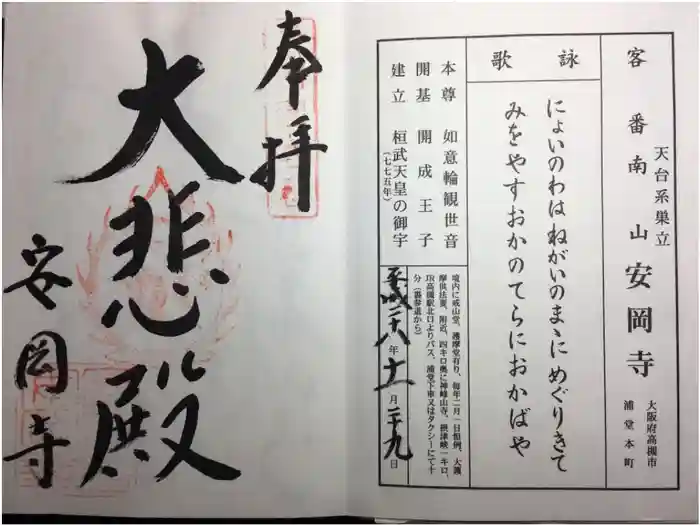 客番 南山 安岡寺
天台系単立
大阪府高槻市
浦堂本町
詠歌
にょいのわはねがいのまゝにめぐりきて
みをやすおかのてらにおかばや
本尊 如意輪観世音
開基 開成王子
建立 桓武天皇の御宇
(七七五年)
境内に戒山堂、護摩堂有り、毎年二月一日恒例、大護
摩供法要、附近、四キロ奥に神峰山寺、摂津峡一キロ、
JR高槻駅北口よりバス、浦堂下車又はタクシーにて十
分(裏参道から)
平成二十八年十一月二十九日
奉拝
大悲殿
安岡寺